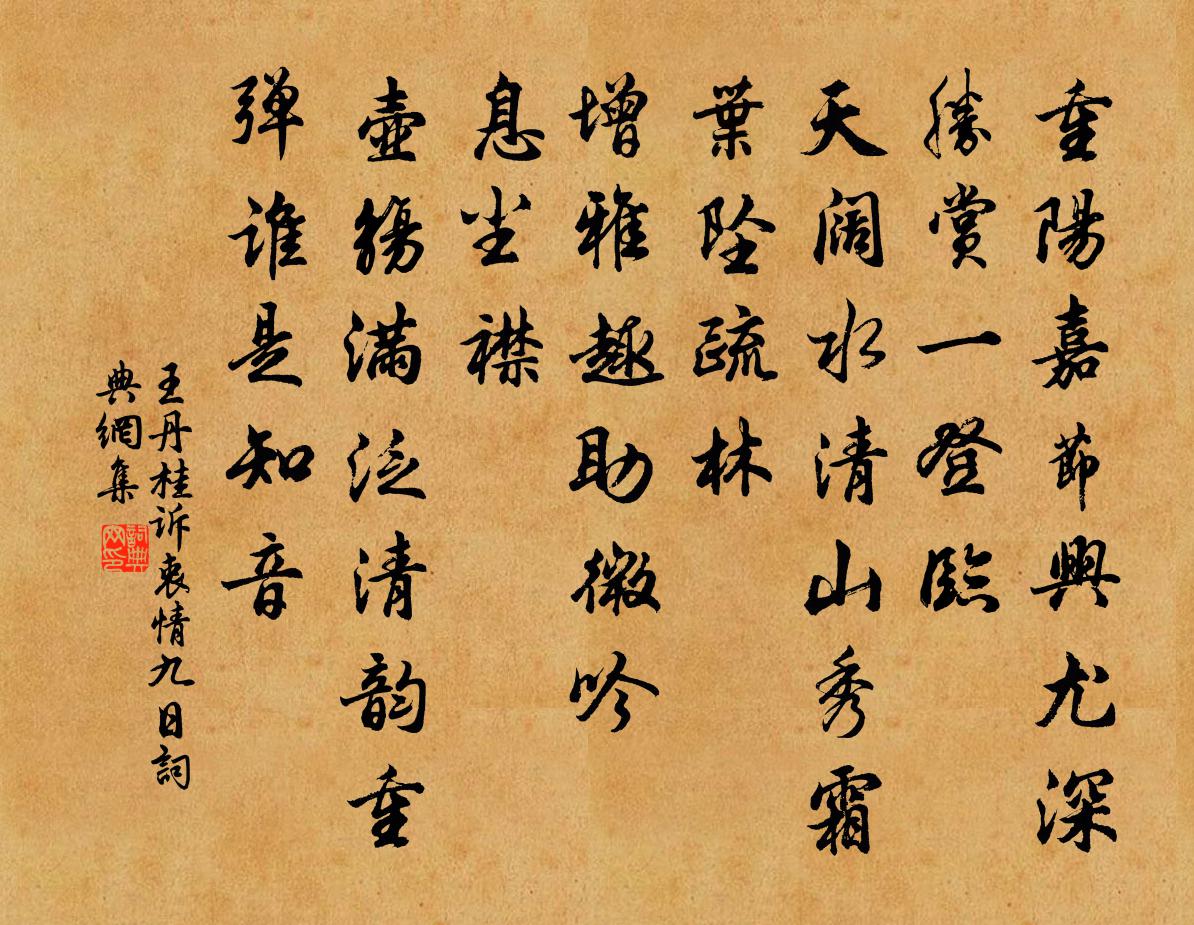 重陽嘉節興尤深
勝賞一登臨
天闊水清山秀霜
葉墜疏林
增雅趣助微吟
息尘襟
壺觴滿泛清韵重
弹誰是知音
王丹桂訴衷情九日詞
典網集
詞典网印